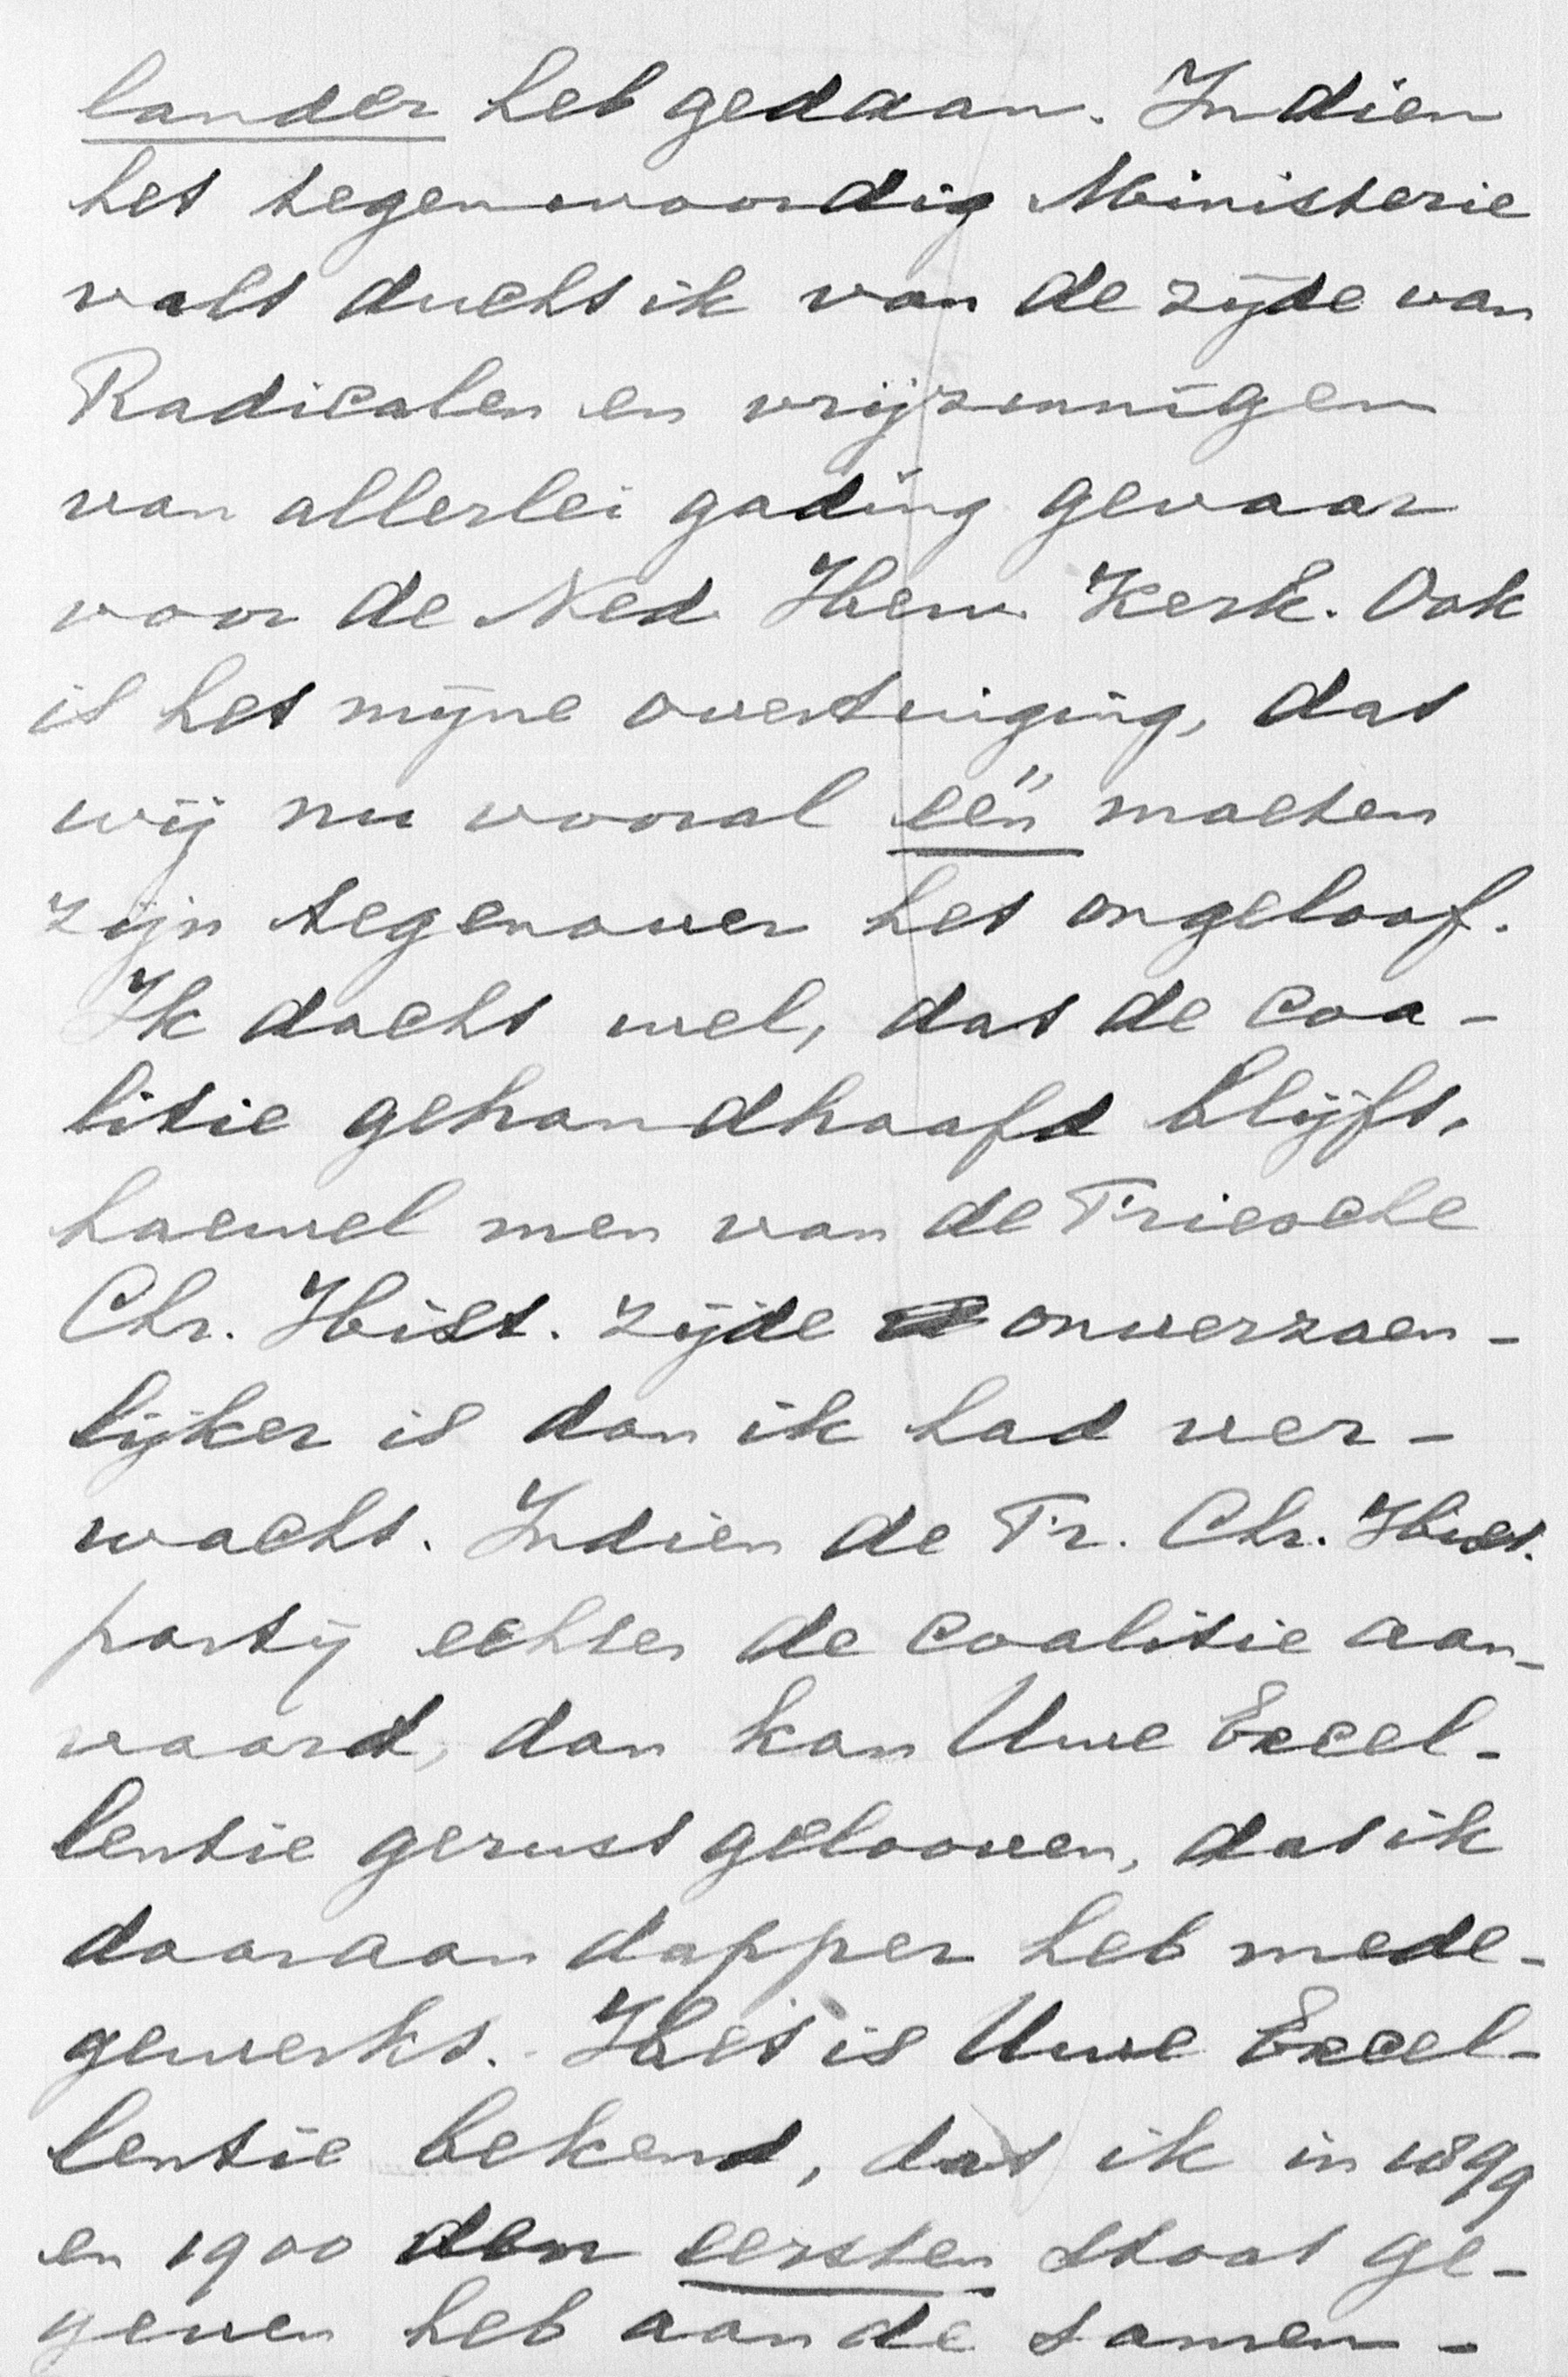 lander heb gedaan. Indien
het tegenwoordig Ministerie
valt ducht ik van de zijde van
Radicalen en vrijzinnigen
van allerlei gading gevaar
voor de Ned. Herv. Kerk. Ook
is het mijne overtuiging, dat
wij nu vooral één moeten
zijn tegenover het ongeloof.
Ik dacht wel, dat de coa-
litie gehandhaafd blijft,
hoewel men van de Friesche
Chr. Hist. zijde onverzoen-
lijker is dan ik had ver-
wacht. Indien de Fr. Chr. Hist.
partij echter de coalitie aan-
vaard, dan kan Uwe Excel-
lentie gerust gelooven, dat ik
daaraan dapper heb mede-
gewerkt. Het is Uwe Excel-
lentie bekend, dat ik in 1899
en 1900 den eersten stoot ge-
geven heb aan de samen-